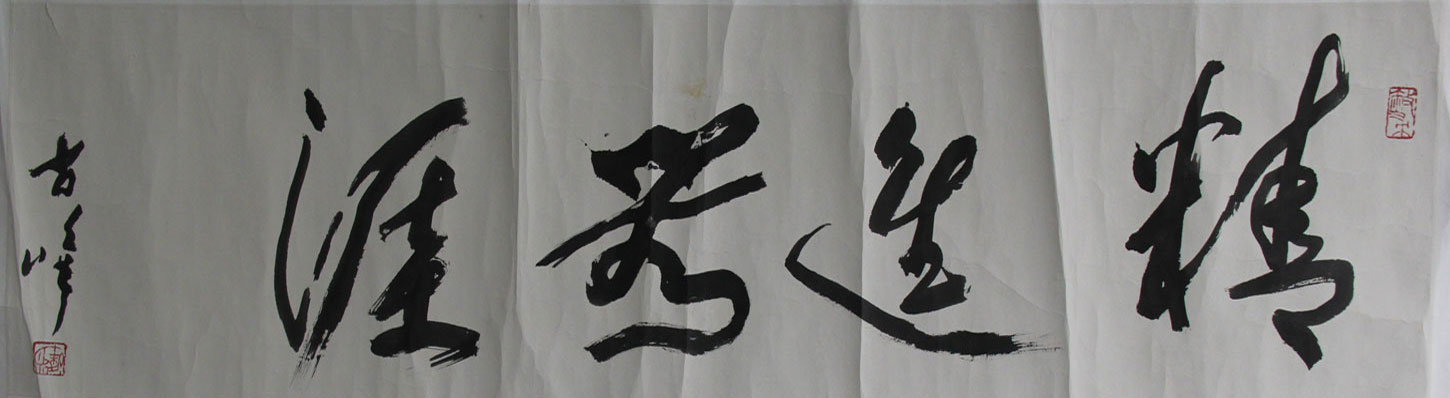 精進無涯
古峰